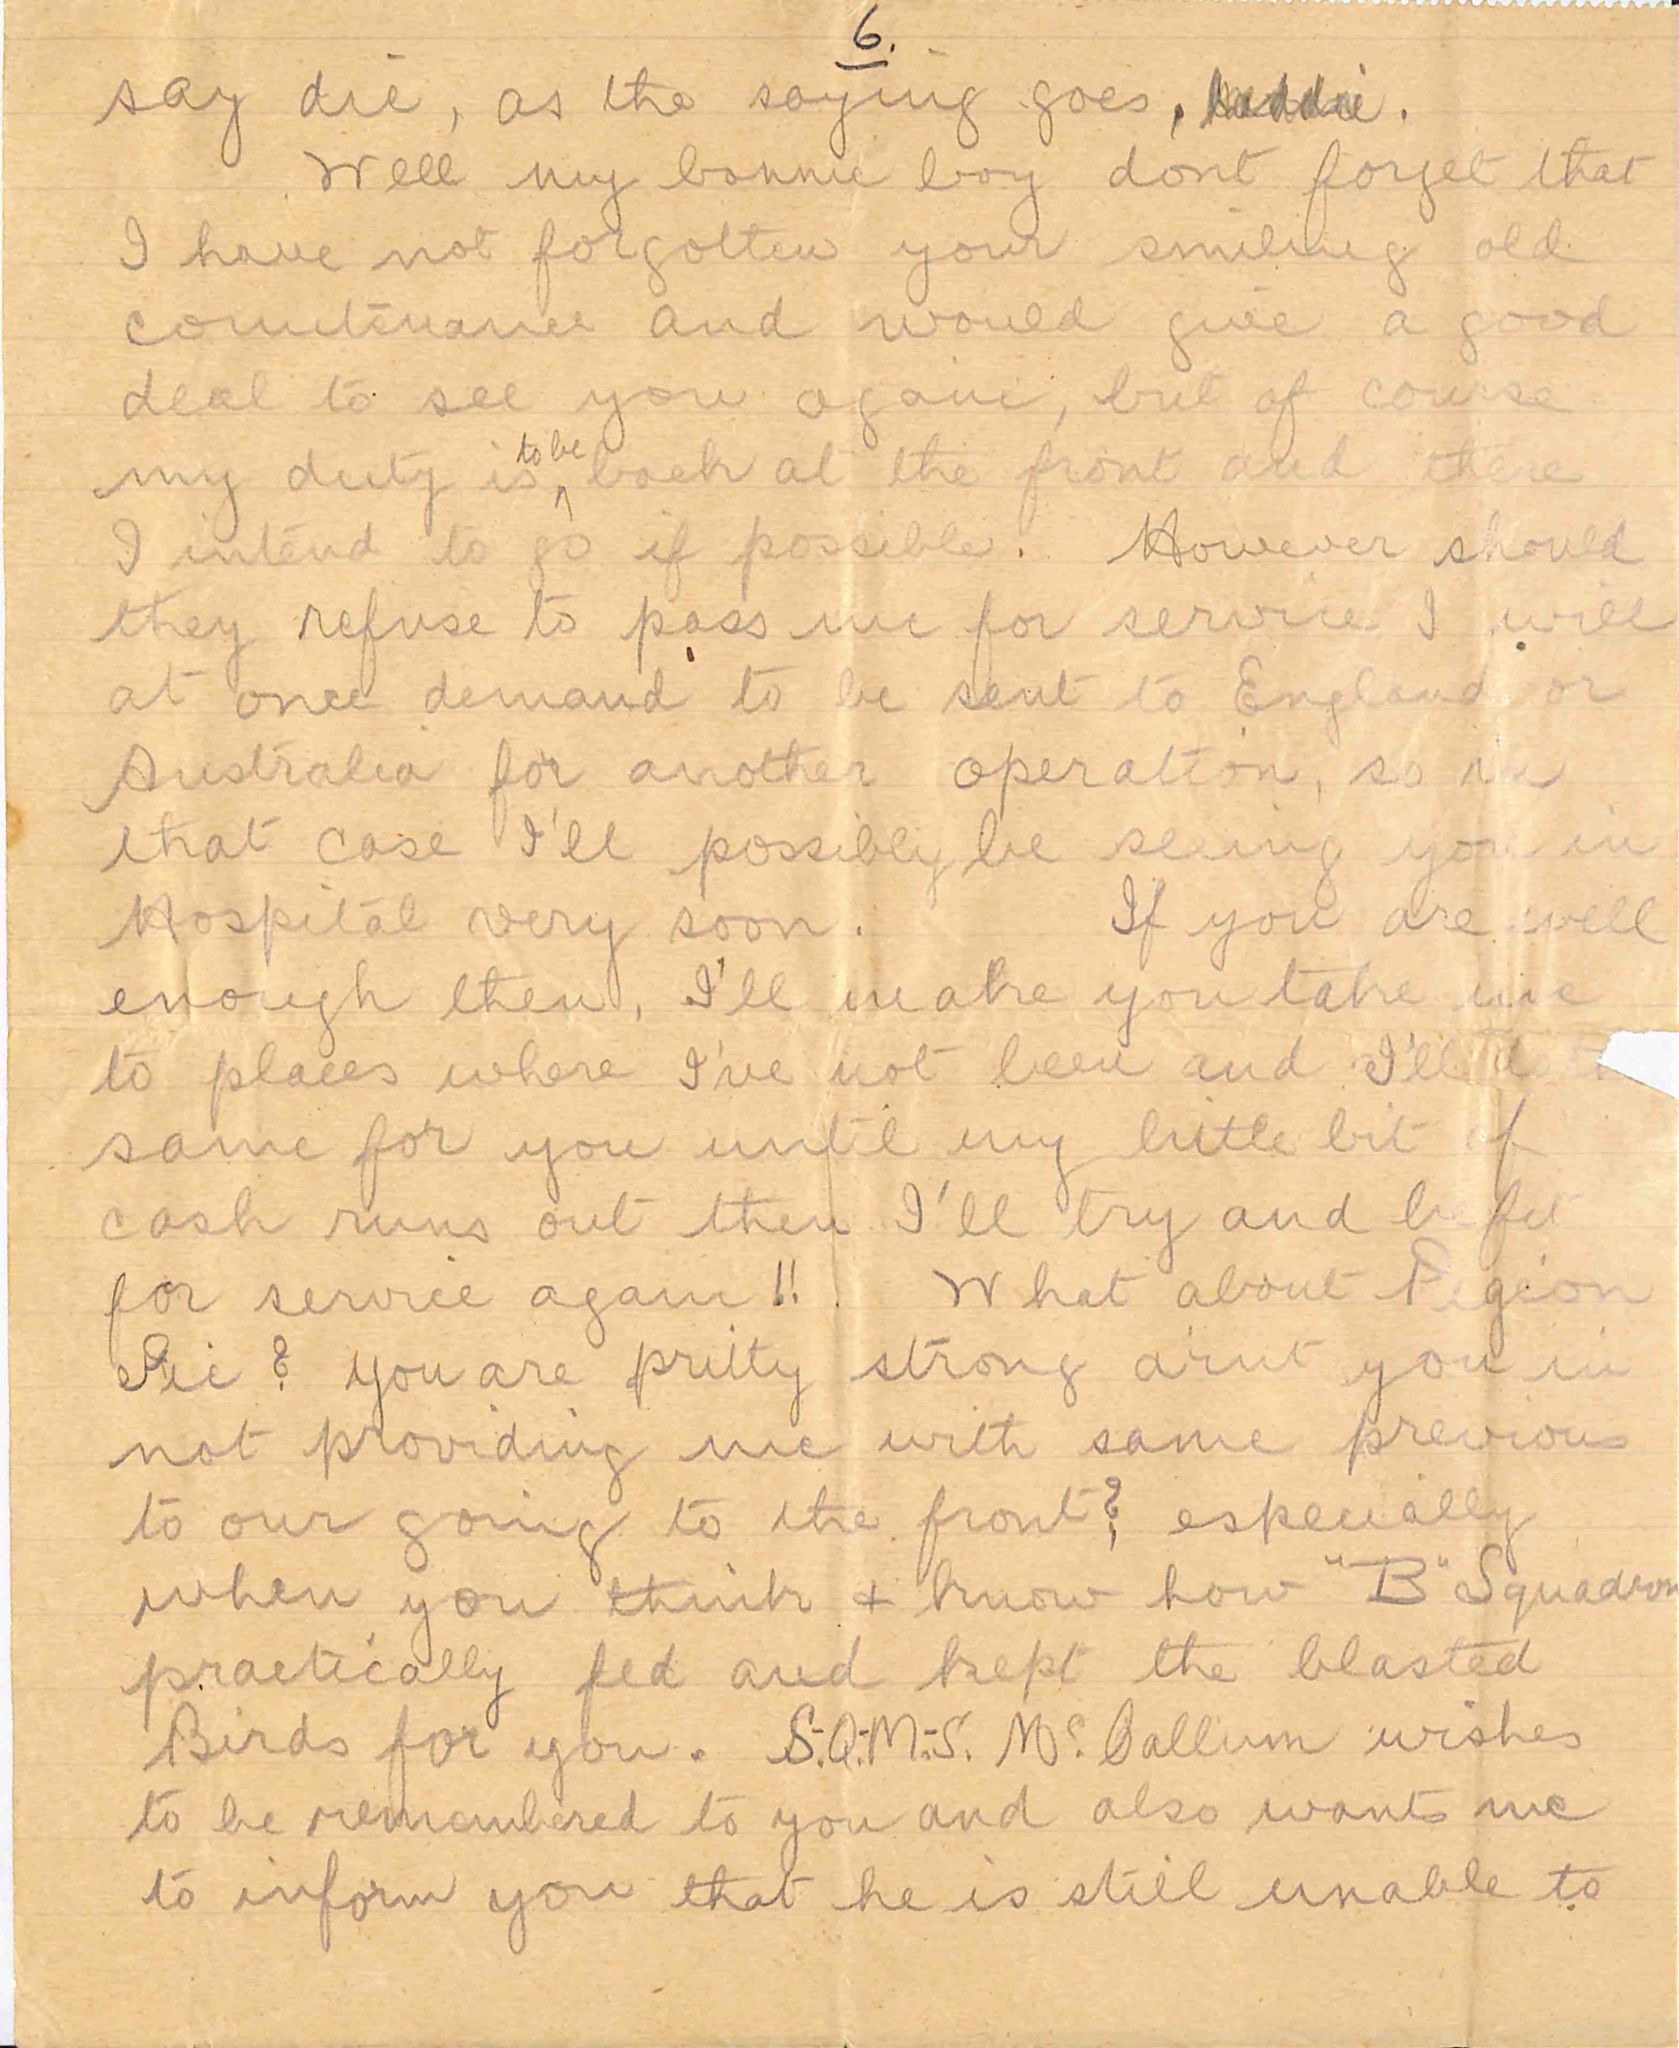 6.
say die, as the saying goes, laddie.
Well my bonnie boy dont forget that
I have not forgotten your smiling old
countenance and would give a good
deal to see you again, but of course
my duty is to be back at the front and there
I intend to go if possible. However should
they refuse to pass me for service I will
at once demand to be sent to England or
Australia for another operation, so in
that case I'll possibly be seeing you in
Hospital very soon. If you are well
enough then, I'll make you take me
to places where I've not been and I'll do
same for you until my little bit of
cash runs out then I'll try and be fit
for service again!! What about Pigeon
Pie? you are pritty strong a'rnt you in
not providing me with same previous
to our going to the front? especially
when you think & know how "B" Squadron
practically fed and kept the blasted
Birds for you. S.Q.M.S. McCallum wishes
to be remembered to you and also wants me
to inform you that he is still unable to